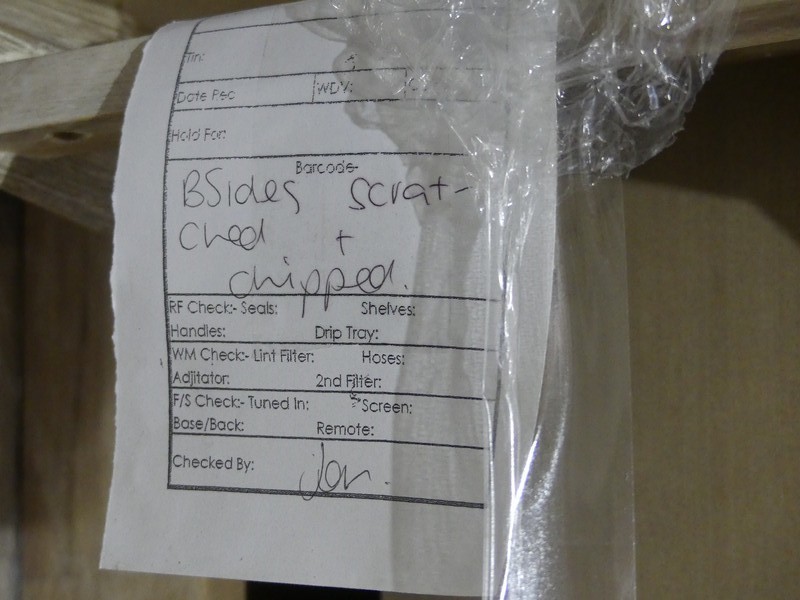 Date Rec WDV:
Hold For:
Barcode-
BSides scrat-
ched +
chipped.
RF Check:- Seals: Shelves:
Handles: Drip Tray:
WM Check:- Lint Filter: Hoses:
Adjitator: 2nd Filter:
F/S Check:- Tuned In: Screen:
Base/Back: Remote:
Checked By: Jon.